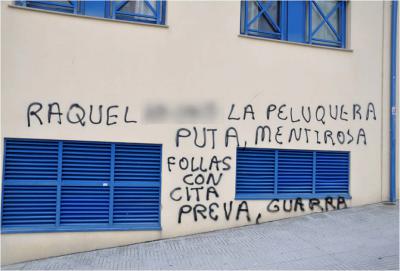 RAQUEL LA PELUQUERA
PUTA, MENTIROSA
FOLLAS
CON
CITA
PREVA, GUARRA